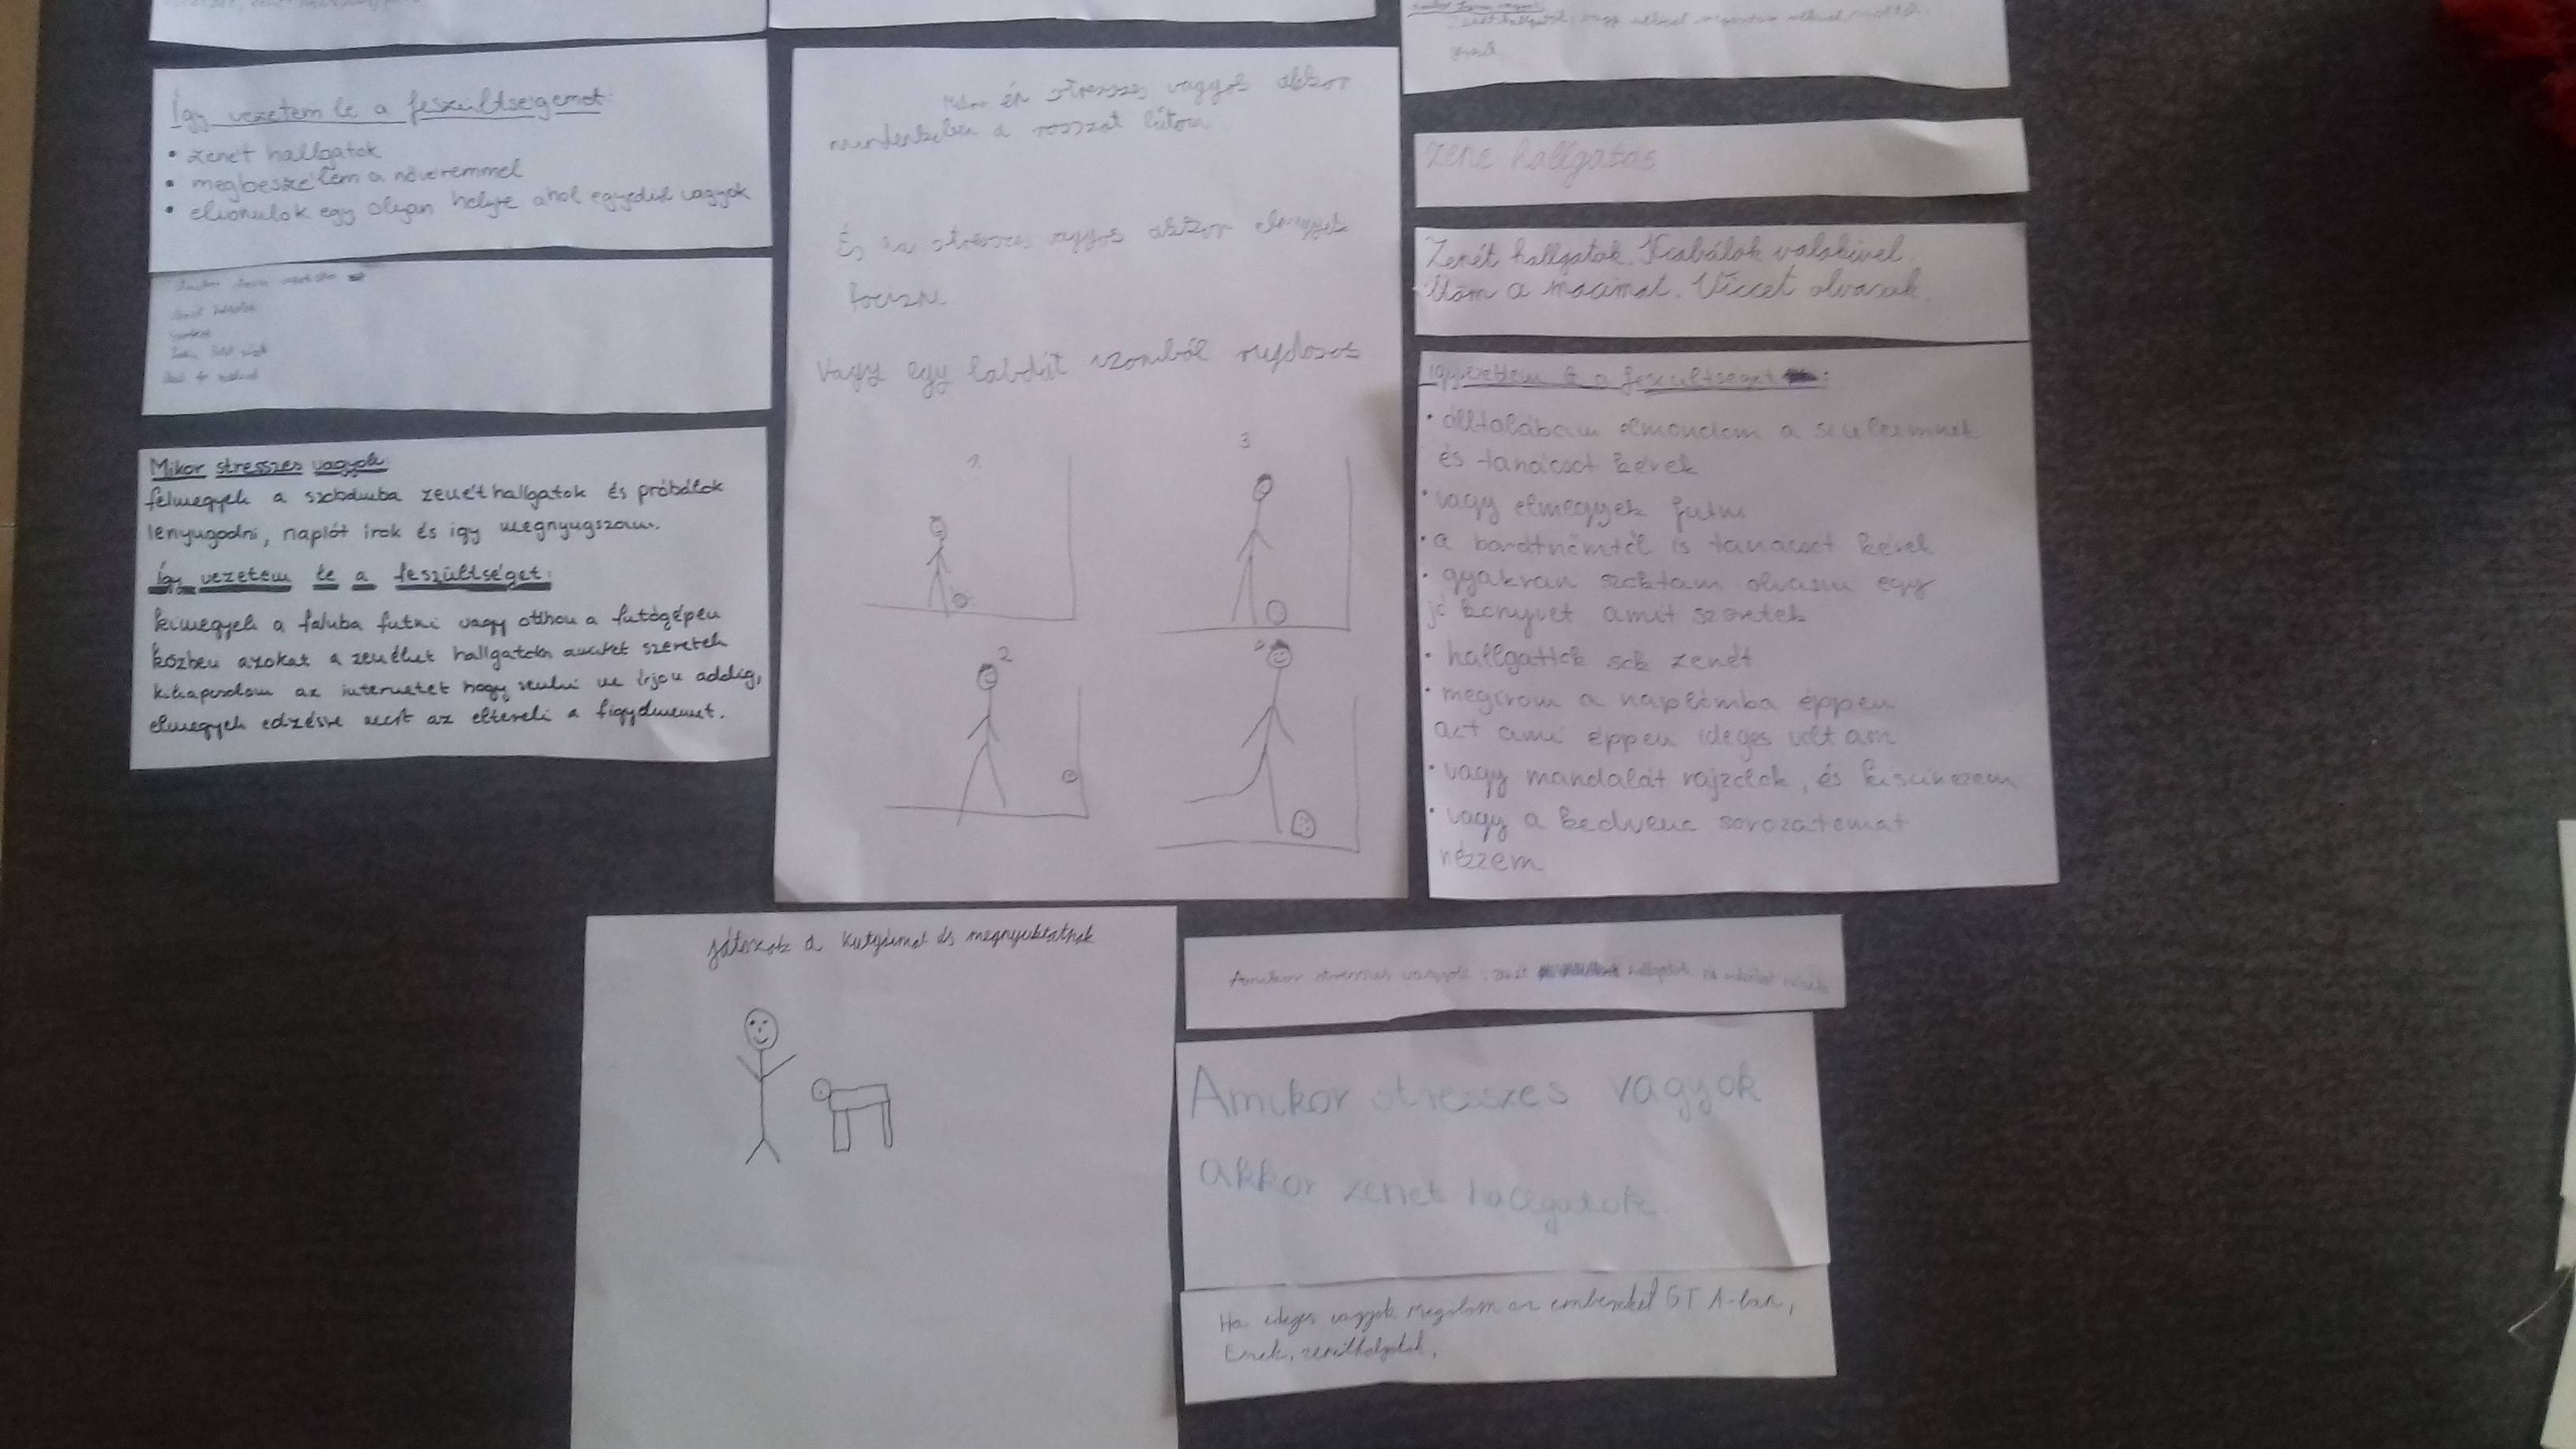 Így vezetem le a feszültségemet:
• zenét hallgatok
• megbeszélem a nővéremmel
• elvonulok egy olyan helyre ahol egyedül vagyok
Mikor stresszes vagyok:
felmegyek a szobámba zenét hallgatok és próbálok
lenyugodni, naplót írok és így megnyugszom.
Így vezetem le a feszültséget:
kimegyek a faluba futni vagy otthon a futógépen
közben azokat a zenéket hallgatom amiket szeretek
kikapcsolom az internetet hogy senki ne írjon addig,
elmegyek edzésre mert az eltereli a figyelmemet.
Mikor én stresszes vagyok akkor
mindenkiben a rosszat látom
És ha stresszes vagyok akkor elmegyek
focizni
Vagy egy labdát rugdosok
1.
3
2
zene hallgatás
Zenét hallgatok. Kiabálok valakivel.
Ütöm a macimat. Viccet olvasok.
így vezetem le a feszültséget:
• álltalában elmondom a szüleimnek
és tanácsot kérek
• vagy elmegyek futni
• a barátnőmtől is tanácsot kérek
• gyakran szoktam olvasni egy
jó könyvet amit szeretek
• hallgattok sok zenét
• megírom a naplómba éppen
azt ami éppen ideges voltam
• vagy mandalát rajzolok, és kiszinezem
• vagy a kedvenc sorozatomat
nézzem
játszok a kutyámal és megnyuktatnak
Amikor stresszes vagyok hallgatok
Amikor stresszes vagyok
akkor zenét hallgatok.
Ha ideges vagyok megölöm az embereket GTA-ban,
Eszek, zenéthalgatok,